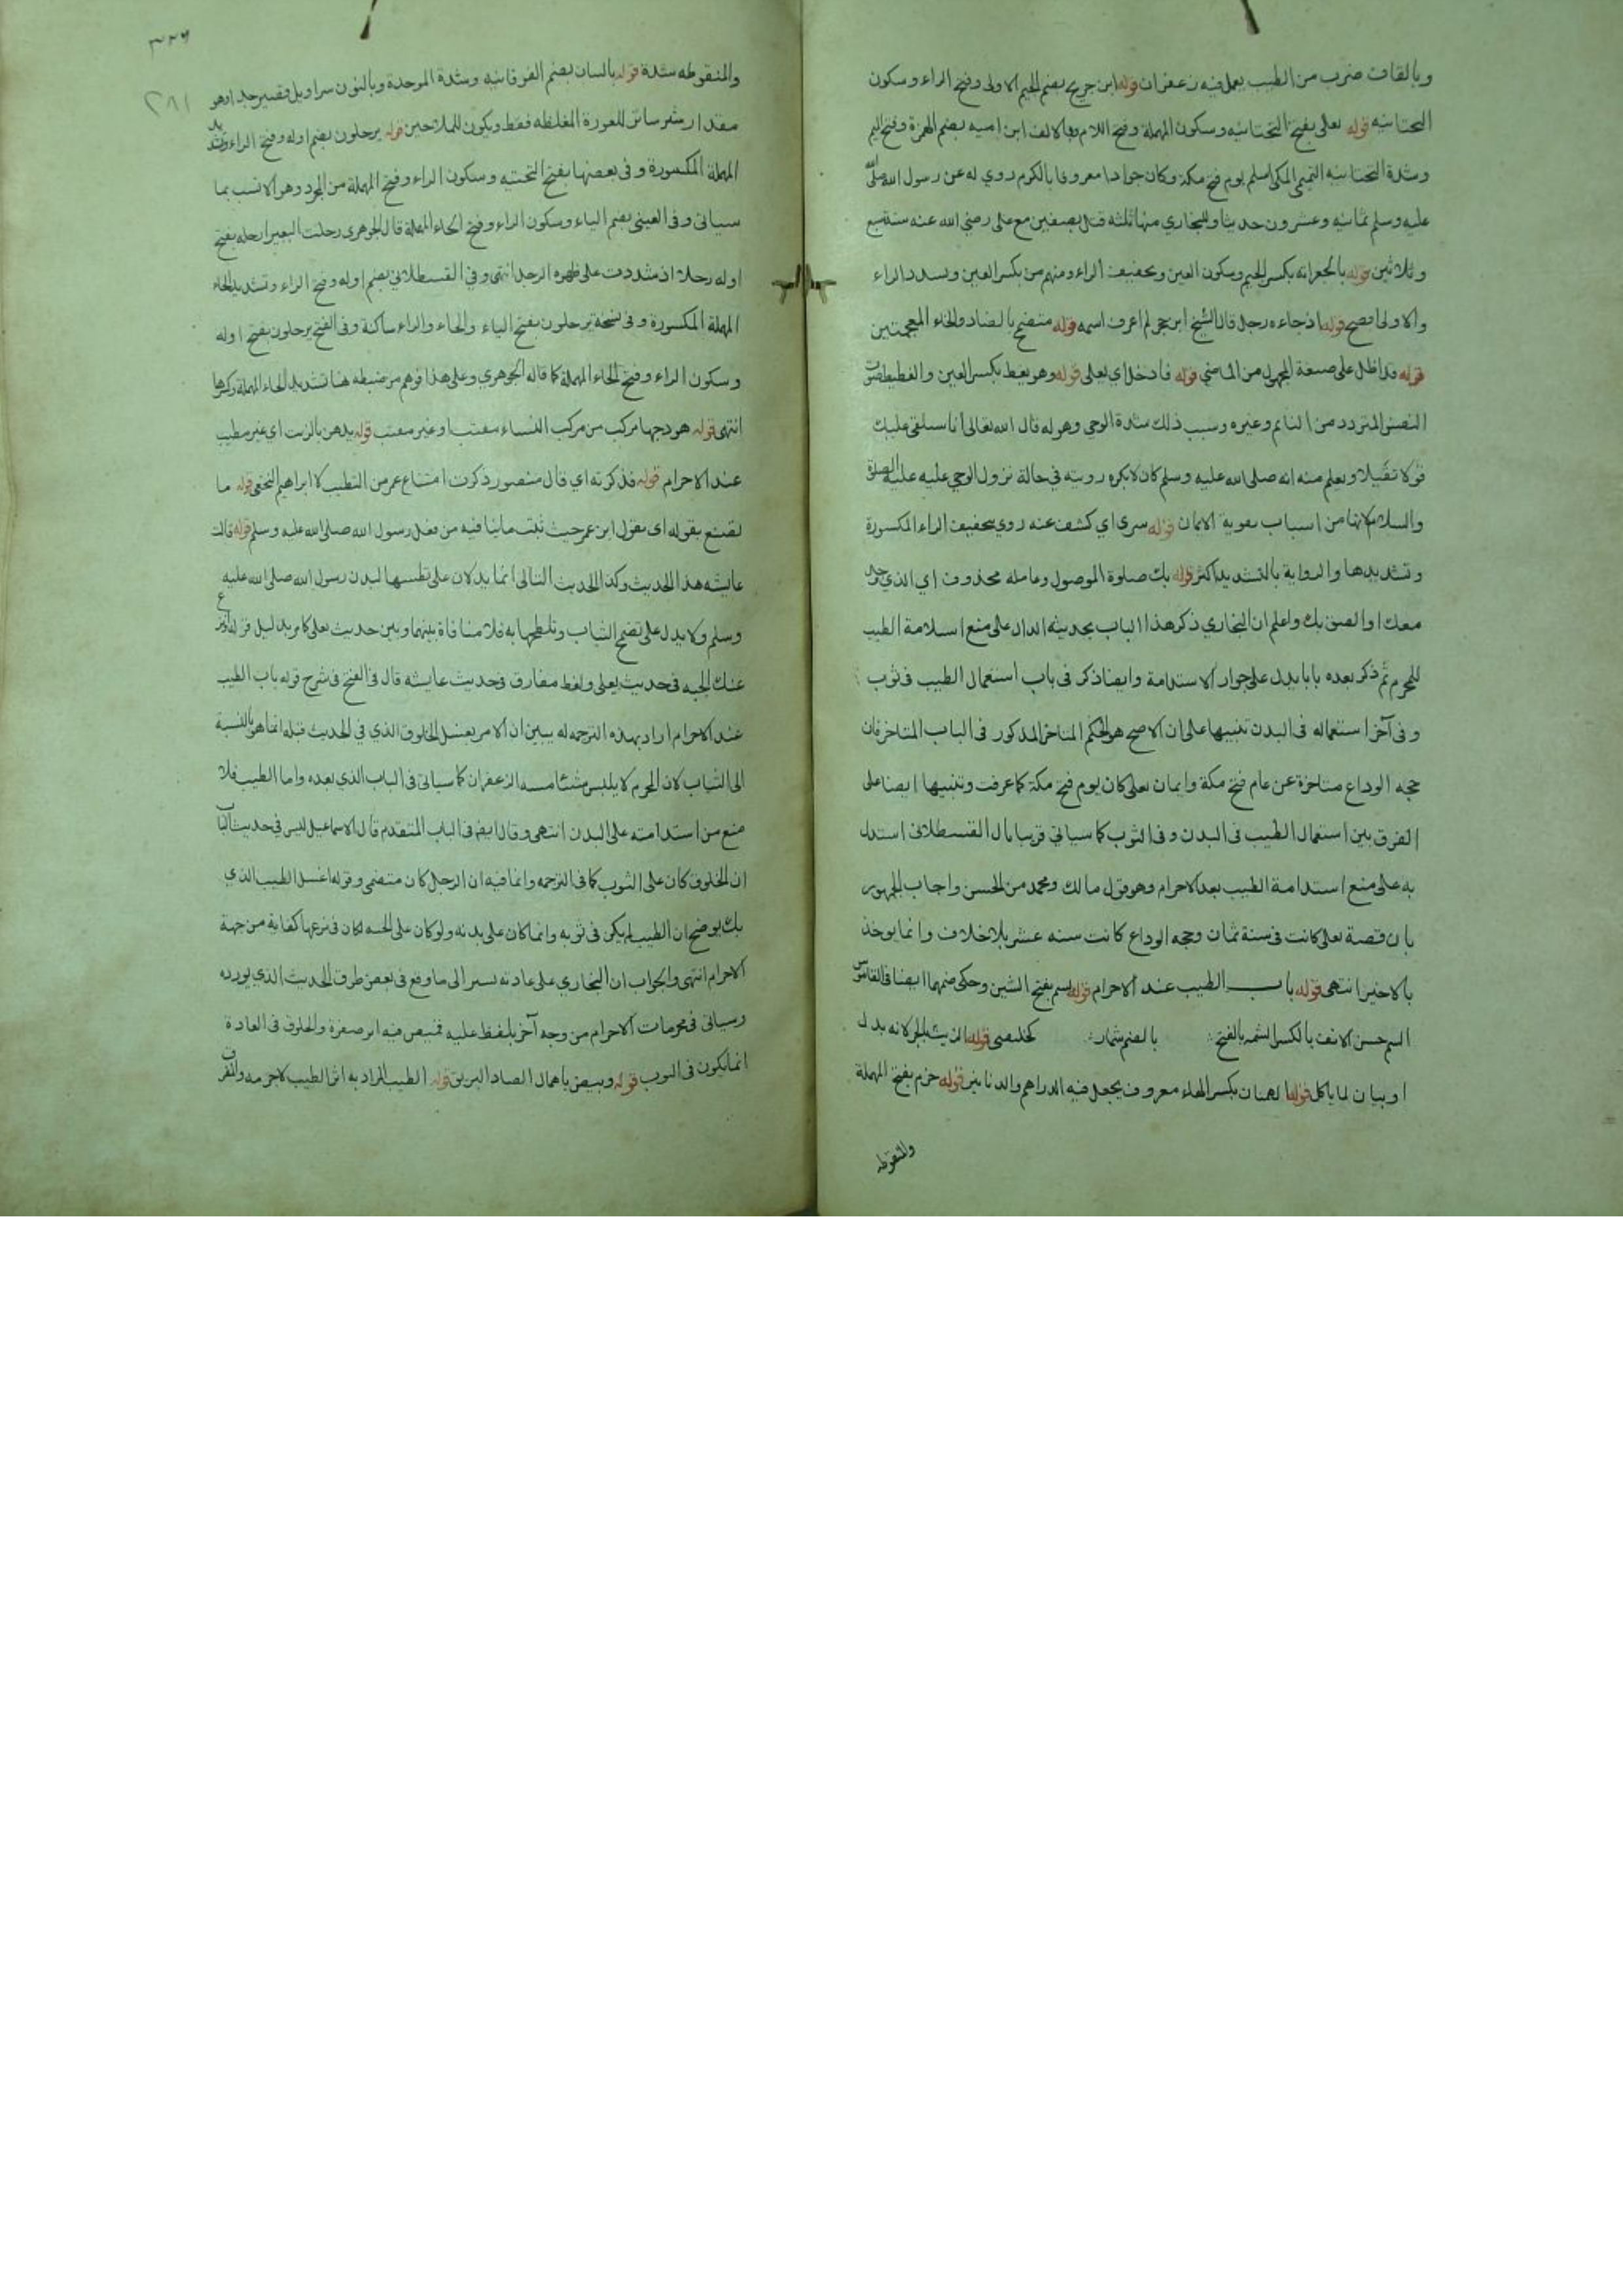 وبالقاف ضرب من الطيب يعمل فيه زعفران قوله ابن جريج بضم الجيم الاولى وفتح الراء وسكون
التحتانيه قوله يعلى بفتح التحتانيه وسكون المهملة وفتح اللام وبالالف ابن اميه بضم الهمزة وفتح الميم
وشدة التحتانيه التميمى المكى اسلم يوم فتح مكة وكان جوادا معروفا بالكرم روي له عن رسول الله صلى الله
عليه وسلم ثمانيه وعشرون حديثا وللبخاري منها ثلثه قتل بصفين مع على رضي الله عنه سنة سبع
وثلاثين قوله بالجعرانه بكسر الجيم وسكون العين وتخفيف الراء ومنهم من بكسر العين ويسدد الراء
والاولى افصح قوله اذ جاءه رجل قال الشيخ ابن حجر لم اعرف اسمه قوله متضمخ بالضاد والخاء المعجمتين
قوله قد اظل على صيغة المجهول من الماضي قوله فادخل اي يعلى قوله وهو يغط بكسر العين والغطيط صوت
النفس المتردد من النائم وغيره وسبب ذلك شدة الوحي وهوله قال الله تعالى انا سنلقى عليك
قولا ثقيلا ويعلم منه انه صلى الله عليه وسلم كان لا يكره رويته في حالة نزول الوحي عليه عليه الصلوة
والسلام لانها من اسباب تقوية الايمان قوله سرى اي كشف عنه روي بتخفيف الراء المكسورة
وتشديدها والرواية بالتشديد اكثر قوله بك صلوة الموصول وعامله محذوف اي الذي وجد
معك او الصق بك واعلم ان البخاري ذكر هذا الباب بحديثه الدال على منع اسلامة الطيب
للمحرم ثم ذكر بعده بابا يدل على جواز الاستدامة وايضا ذكر فى باب استعمال الطيب فى ثوب
وفى آخر استعماله فى البدن تنبيها على ان الاصح هو الحكم المتاخر المذكور فى الباب المتاخر فان
حجه الوداع متاخرة عن عام فتح مكة وايمان يعلى كان يوم فتح مكة كما عرفت وتنبيها ايضا على
الفرق بين استعمال الطيب فى البدن وفى الثوب كما سياتى قريبا قال القسطلانى استدل
به على منع استدامة الطيب بعد الاحرام وهو قول مالك ومحمد من الحسن واجاب الجمهور
بان قصة يعلى كانت فى سنة ثمان وحجه الوداع كانت سنه عشر بلا خلاف وانما يوخذ
بالاخير انتهى قوله باب الطيب عند الاحرام قوله يسم بفتح الشين وحكى ضمها ايضا فى القاموس
السم حسن الانف بالكسر اشمه بالفتح بالضم شمار كخليصى قوله الزيت بالجر لانه بدل
او بيان لما ياكل قوله الهميان بكسر الهاء معروف يجعل فيه الدراهم والدنانير قوله حزم بفتح المهملة
والمنقوطه
٣٢٦
٢٨١
والمنقوطه شدة قوله بالتبان بضم الفوقانيه وشدة الموحدة وبالنون سراويل قصير جدا وهو
مقدار شبر ساتر للعورة المغلظه فقط ويكون للملاحين قوله يرحلون بضم اوله وفتح الراء وتشديد
المهملة المكسورة وفى بعضها بفتح التحتيه وسكون الراء وفتح المهملة من المجرد وهو الانسب بما
سياتى وفى العينى بضم الياء وسكون الراء وفتح الحاء المهملة قال الجوهرى رحلت البعير ارحله بفتح
اوله رحلا اذ شددت على ظهره الرحل انتهى وفي القسطلانى بضم اوله وفتح الراء وتشديد الحاء
المهملة المكسورة وفى نسخة يرحلون بفتح الياء والحاء والراء ساكنة وفى الفتح يرحلون بفتح اوله
وسكون الراء وفتح الحاء المهملة كما قاله الجوهري وعلى هذا فوهم من ضبطه هنا تشديد الحاء المهملة وكسرها
انتهى قوله هودجها مركب من مركب النساء مقتبا وغير مقتب قوله يدهن بالزيت اي غير مطيب
عند الاحرام قوله فذكرته اي قال منصور ذكرت امتناع عمر من التطيب لابراهيم النخعى قوله ما
تصنع بقوله اى بقول ابن عمر حيث ثبت ماينافيه من فعل رسول الله صلى الله عليه وسلم قوله قالت
عايشه هذا الحديث وكذا الحديث التالى انما يدلان على تطيبها لبدن رسول الله صلى الله عليه
وسلم ولا يدل على تضمخ الثياب وتلطخها به فلا منافاة بينهما وبين حديث يعلى كما يريد ليل قوله انزع
عنك الجبه فى حديث يعلى ولفظ مفارق فى حديث عايشه قال فى الفتح فى شرح قوله باب الطيب
عند الاحرام اراد بهذه الترجمه له يبين ان الامر بغسل الخلوق الذي في الحديث قبله انما هو بالنسبة
الى الثياب لان المحرم لا يلبس شئا مسه الزعفران كما سياتى فى الباب الذي بعده واما الطيب فلا
منع من استدامته على البدن انتهى وقال ايضا فى الباب المتقدم قال الاسماعيل ليس في حديث الباب
ان الخلوق كان على الثوب كما فى الترجمه وانما فيه ان الرجل كان متضمخ وقوله اغسل الطيب الذي
بك يوضح ان الطيب لم يكن فى ثوبه وانما كان على بدنه ولو كان على الجبه لكان فى نزعها كفاية من جهة
الاحرام انتهى والجواب ان البخاري على عادته يسير الى ما وقع فى بعض طرق الحديث الذي يورده
وسياتى فى محرمات الاحرام من وجه آخر بلفظ عليه قميص فيه اثر صفرة والخلوق فى العادة
انما يكون فى الثوب قوله وبيص باهمال الصاد البريق قوله الطيب المراد به اثر الطيب لاجرمه والفرق